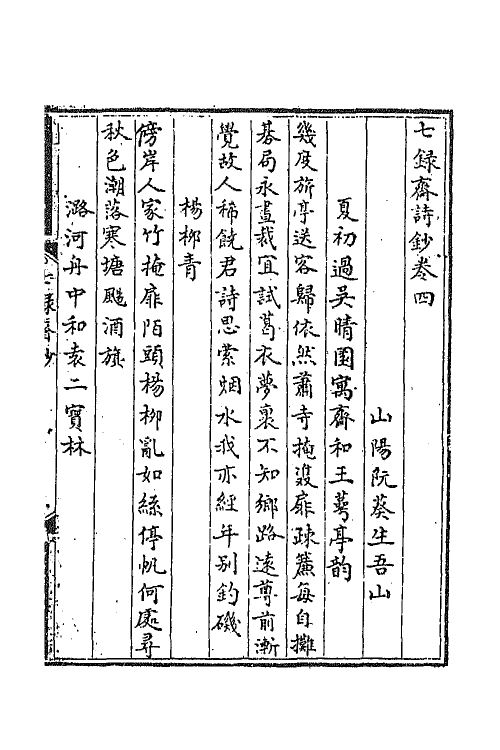 七録齋詩鈔卷四
山陽阮葵生吾山
夏初過吳晴園寓齋和王萼亭韵
幾度旅亭送客歸依然蕭寺掩雙扉疎簾每自攤
棊局永晝裁宜試葛衣夢裏不知鄉路遠尊前漸
覺故人稀饒君詩思縈烟水我亦經年别釣磯
楊柳青
傍岸人家竹掩扉陌頭楊柳亂如絲停帆何處尋
秋色潮落寒塘颺酒旗
潞河舟中和袁二寶林
七録齋鈔